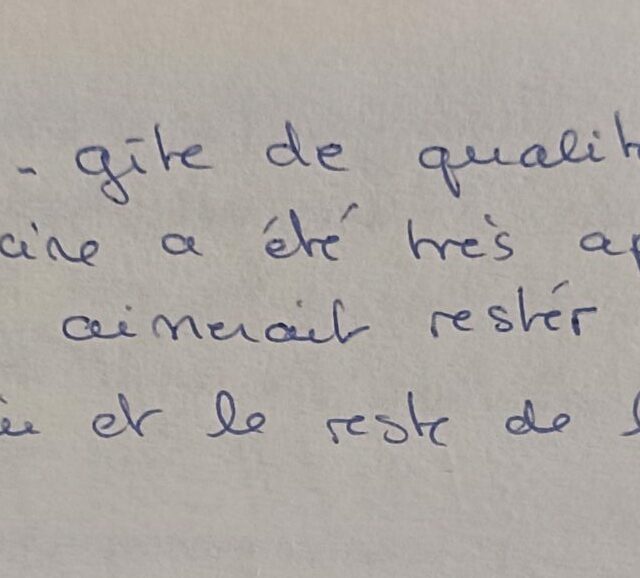 - gîte de qualit
aire a été très ap
aimerait restér
et le reste de l